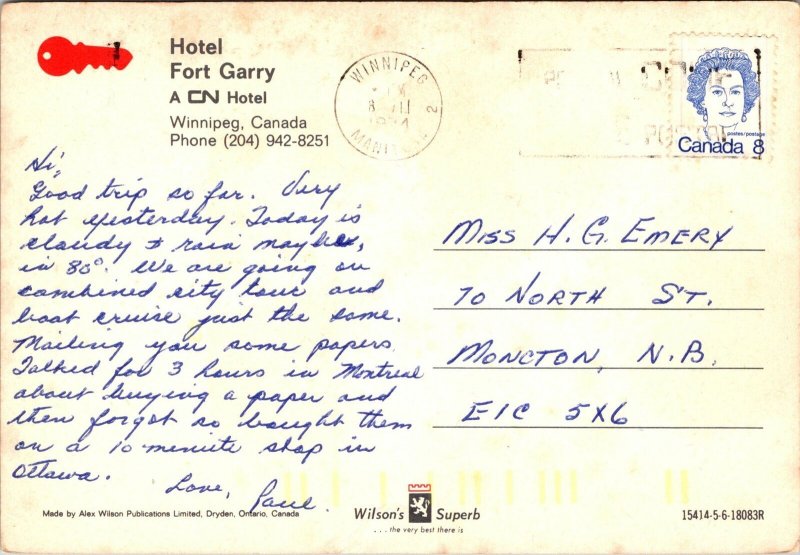 Hotel
Fort Garry
A CN Hotel
Winnipeg, Canada
Phone (204) 942-8251
WINNIPEG
MANITOBA
2
postes/postage
Canada 8
Hi,
Good trip so far. Very
hot yesterday. Today is
claudy & rain maybe,
in 80°. We are going on
combined city tour and
boat cruise just the same.
Mailing you some papers.
Talked for 3 hours in Montreal
about buying a paper and
then forgot so bought them
on a 10-minute stop in
Ottawa.
Love,
Paul.
MISS H. G. EMERY
70 NORTH ST.
MONCTON, N.B.
E1C 5X6
Made by Alex Wilson Publications Limited, Dryden, Ontario, Canada
Wilson's Superb
. . . the very best there is
15414-5-6-18083R